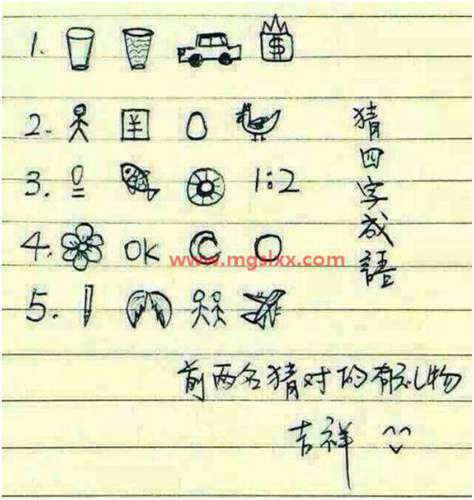 1. $
2. 羊
3. 1:2
4. OK C O
www.mgslxx.com
5.
猜四字成語
前两名猜对的有礼物
吉祥